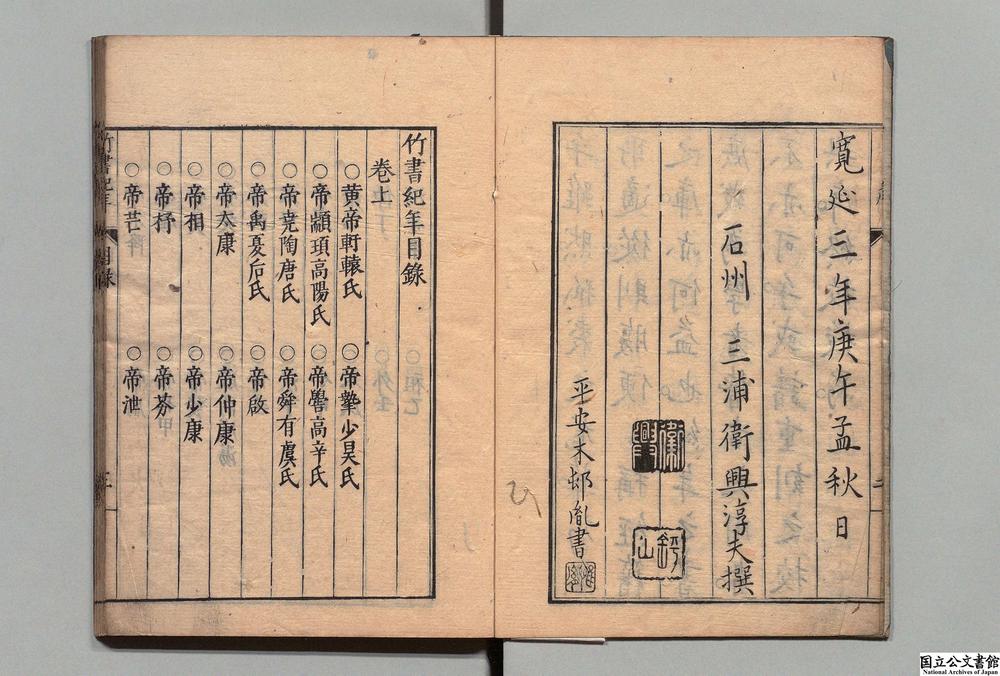 寛延三年庚午孟秋日
石州 三浦衛興淳夫撰
衛興
平安木邨胤書
竹書紀年目錄
卷上
○黃帝軒轅氏 ○帝摯少昊氏
○帝顓頊高陽氏 ○帝嚳高辛氏
○帝堯陶唐氏 ○帝舜有虞氏
○帝禹夏后氏 ○帝啟
○帝太康 ○帝仲康
○帝相 ○帝少康
○帝杼 ○帝芬
○帝芒 ○帝泄
竹書紀年 目錄
国立公文書館
National Archives of Japan